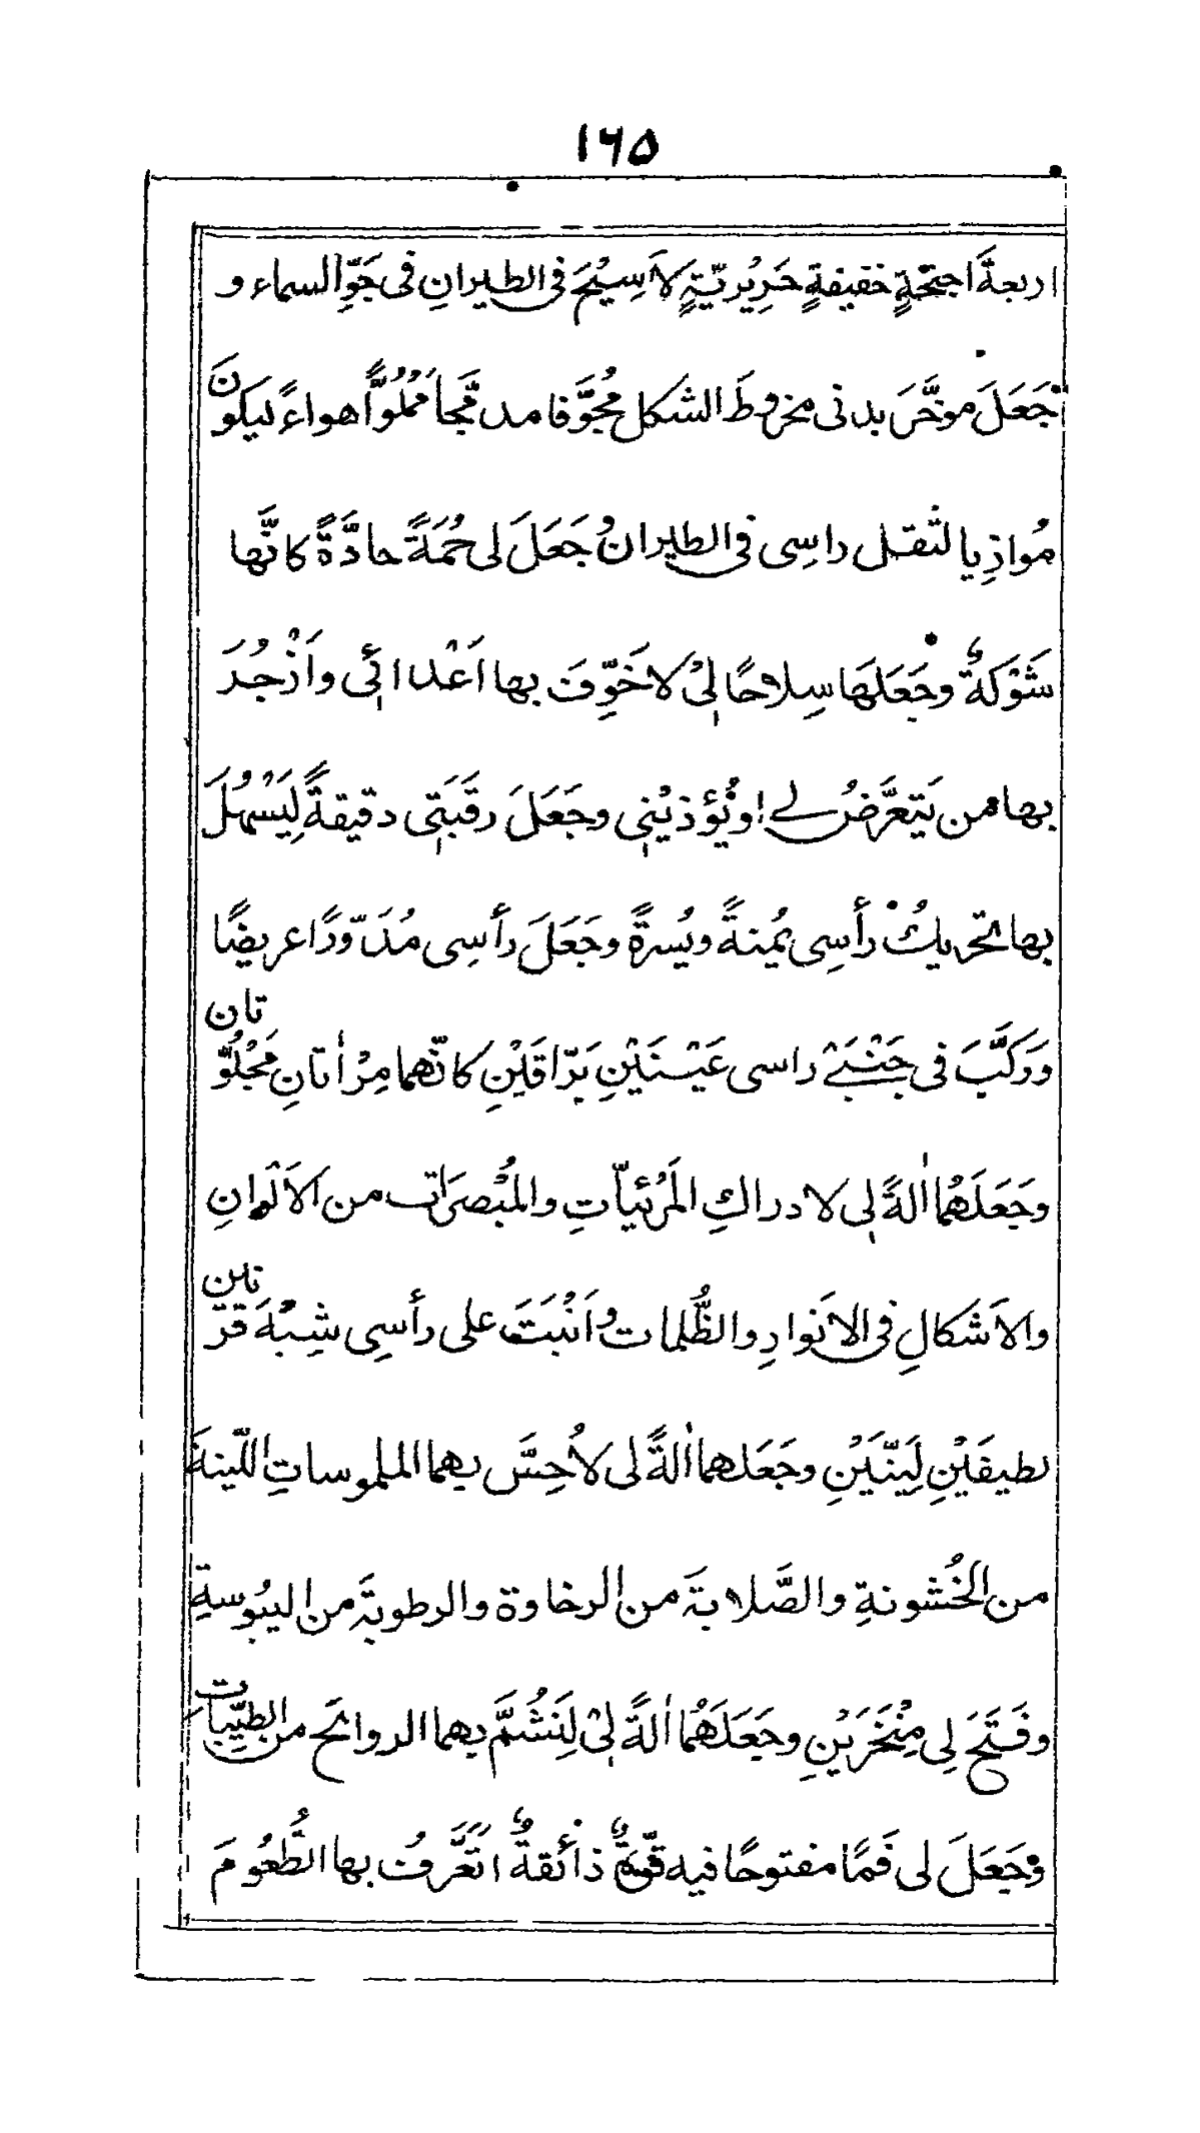 ١٦٥
اربعةَ اجنحةٍ خفيفةٍ حَرِيْرِيّةٍ لاَسِيْحَ فى الطيرانِ فى جَوِّ السماء و
جَعَلَ موخَّرَ بدنى مخروطَ الشكل مُجوَّفا مدمَّجاً مَمْلُوًّا هواءً ليكونَ
مُوازِيا لثقل راسِى فى الطيران وجَعَلَ لى حُمَةً حادَّةً كانَّها
شَوْكَةٌ وجَعَلَهَا سِلاحًا لِىْ لاخَوِّفَ بها اَعْداائِى واَزْجُرَ
بها من يَتعرَّضُ لے او يُؤذيْنِى وجَعَلَ رقَبَتِى دقيقةً لِيَسْهُلَ
بها تحريكُ رأسِى يُمنةً ويُسرةً وجَعَلَ رأسِى مُدَوّرًا عريضًا
وَرَكَّبَ فى جَنْبَےْ راسى عَيْنَيْنِ بَرّاقَيْنِ كانّهما مِرْاٰتانِ مَجْلُوّتان
وجَعَلَهُمااٰلةً لِى لادراكِ المَرْئيّاتِ والمُبْصَرَات من الاَلْوانِ
والاَشكالِ فى الانوارِ والظُّلمات واَنْبَتَ على رأسِى شِبْهَ قرنين
لطيفَيْنِ لَيِّنَيْنِ وجَعَلهمااٰلةً لى لاُحِسَّ بهما الملموساتِ اللّينةَ
من الخُشونةِ والصَّلابةَ من الرخاوة والرطوبةَ من اليبُوسةِ
وفَتَحَ لِى مِنْخَرَيْنِ وجَعَلَهُمااٰلةً لِىْ لِنَشُمَّ بهما الروائحَ من الطيّبات
وجَعَلَ لى فَمًا مفتوحًا فيه قوّةٌ ذائقةٌ اتَعَرَّفُ بها الطُّعُومَ